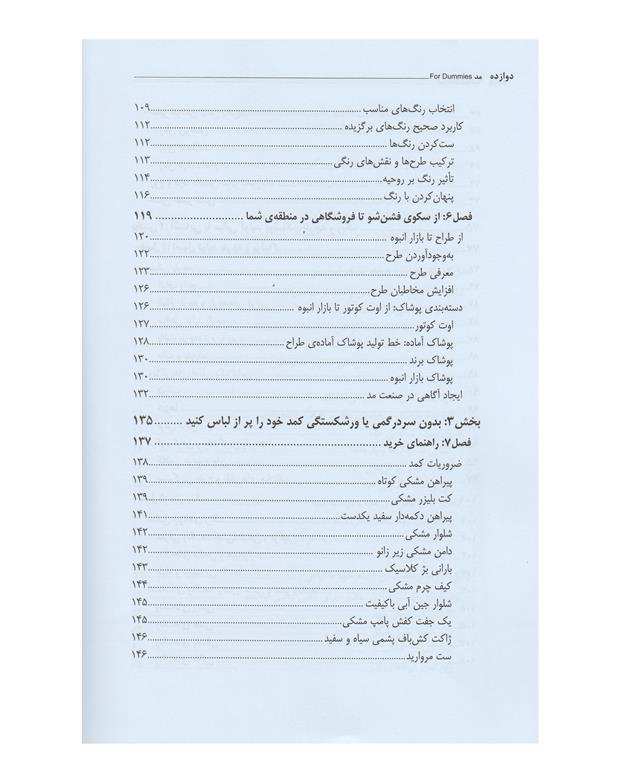 دوازده مد For Dummies
انتخاب رنگ‌های مناسب ۱۰۹
کاربرد صحیح رنگ‌های برگزیده ۱۱۲
ست‌کردن رنگ‌ها ۱۱۲
ترکیب طرح‌ها و نقش‌های رنگی ۱۱۳
تأثیر رنگ بر روحیه ۱۱۴
پنهان‌کردن با رنگ ۱۱۶
فصل ۶: از سکوی فشن‌شو تا فروشگاهی در منطقه‌ی شما ۱۱۹
از طراح تا بازار انبوه ۱۲۰
به‌وجودآوردن طرح ۱۲۲
معرفی طرح ۱۲۳
افزایش مخاطبان طرح ۱۲۶
دسته‌بندی پوشاک: از اوت کوتور تا بازار انبوه ۱۲۶
اوت کوتور ۱۲۷
پوشاک آماده: خط تولید پوشاک آماده‌ی طراح ۱۲۸
پوشاک برند ۱۳۰
پوشاک بازار انبوه ۱۳۰
ایجاد آگاهی در صنعت مد ۱۳۲
بخش ۳: بدون سردرگمی یا ورشکستگی کمد خود را پر از لباس کنید ۱۳۵
فصل ۷: راهنمای خرید ۱۳۷
ضروریات کمد ۱۳۸
پیراهن مشکی کوتاه ۱۳۹
کت بلیزر مشکی ۱۳۹
پیراهن دکمه‌دار سفید یکدست ۱۴۱
شلوار مشکی ۱۴۲
دامن مشکی زیر زانو ۱۴۲
بارانی بژ کلاسیک ۱۴۳
کیف چرم مشکی ۱۴۴
شلوار جین آبی باکیفیت ۱۴۵
یک جفت کفش پامپ مشکی ۱۴۵
ژاکت کش‌باف پشمی سیاه و سفید ۱۴۶
ست مروارید ۱۴۶